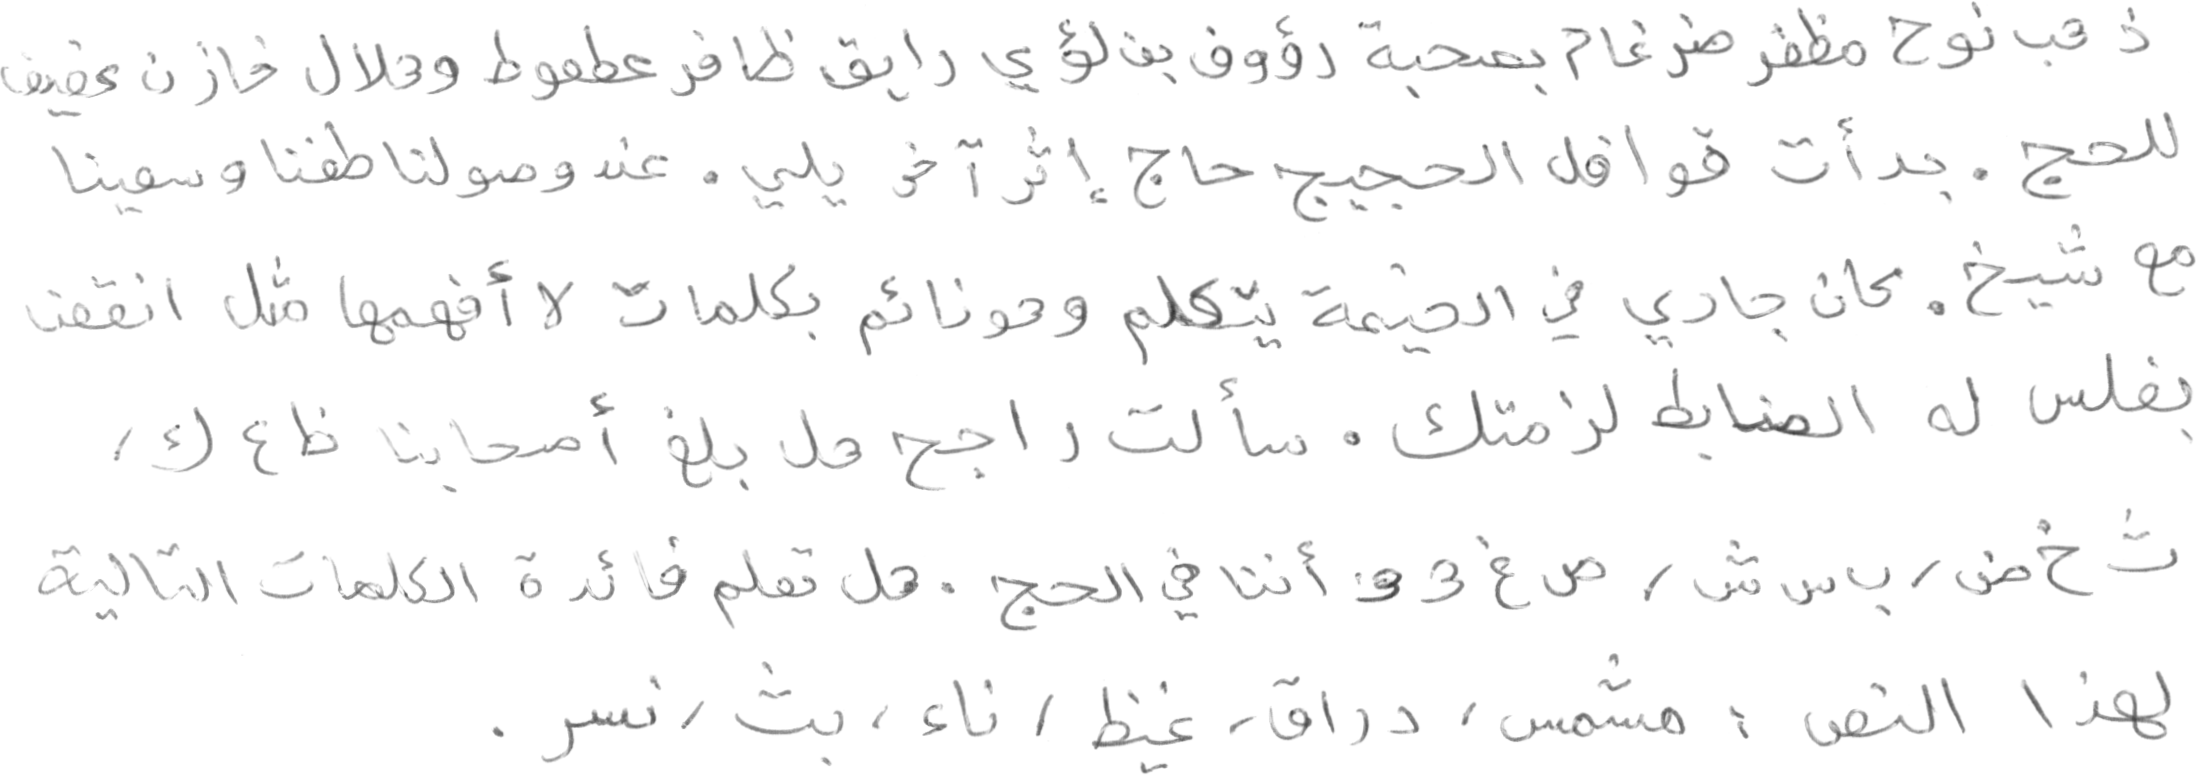 ذهب نوح مظفر ضرغام بصحبة رؤوف بن لؤي رايق ظافر عطعوط وهلال خازن عفيف
للحج . بدأت قوافل الحجيج حاج إثر آخر يلي . عند وصولنا طفنا وسعينا
مع شيخ . كان جاري في الخيمة يتكلم وهو نائم بكلمات لا أفهمها مثل انقفت
بفلس له الضابط لزمتك . سألت راجح هل بلغ أصحابنا ظ ع ك ،
ث خ ض ، ب س ش ، ص غ ه ه أننا في الحج . هل تعلم فائدة الكلمات التالية
لهذا النص : مشمس ، دراق ، غيظ ، ناء ، بث ، نسر .